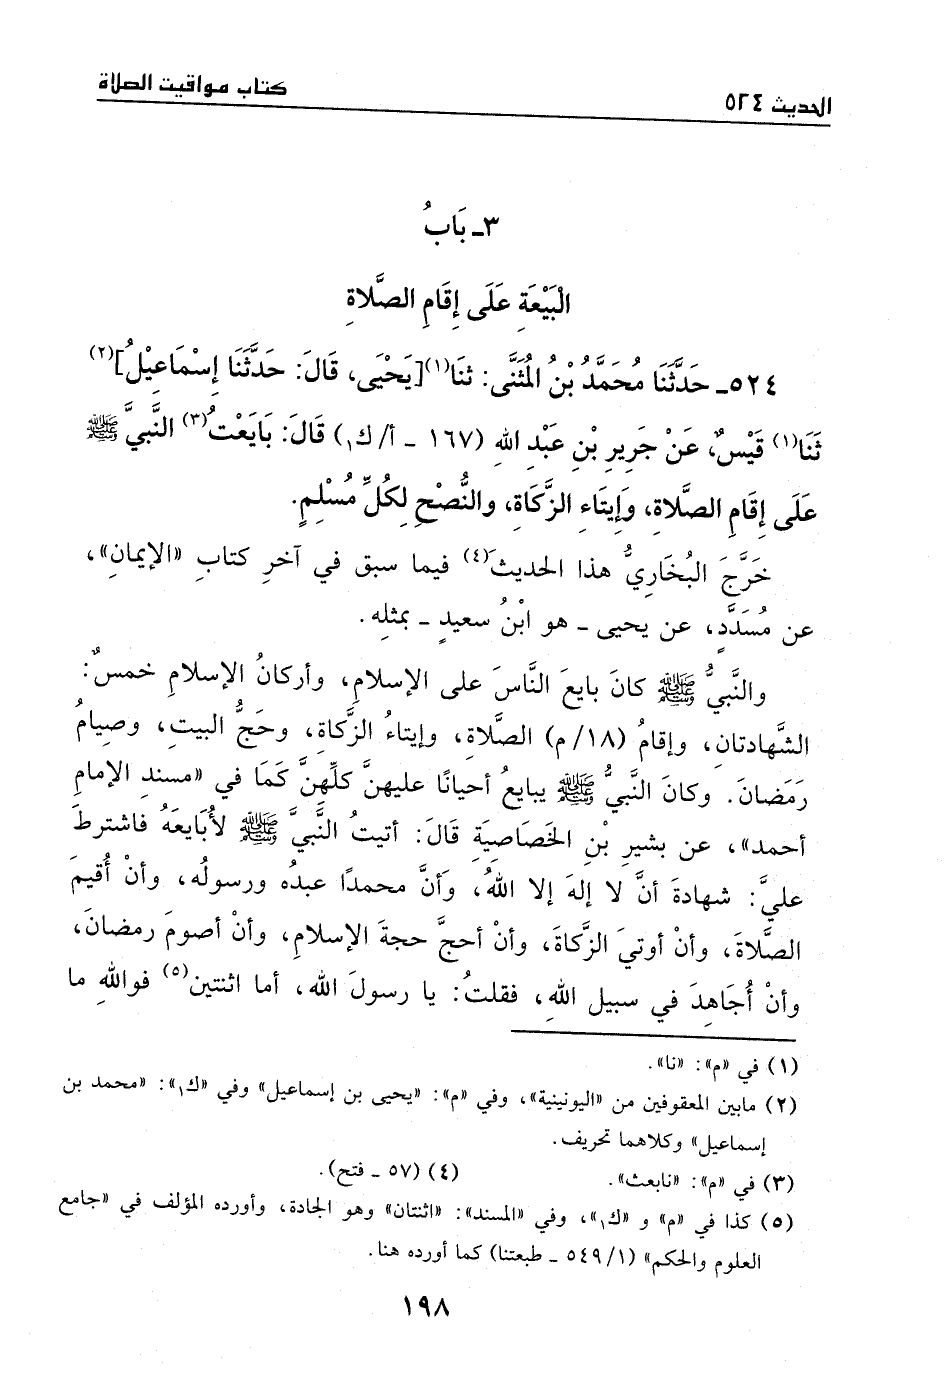 الحديث ٥٢٤ كتاب مواقيت الصلاة
٣ـ بَابُ
الْبَيْعَةِ عَلَى إِقَامِ الصَّلَاةِ
٥٢٤ـ حَدَّثَنَا مُحَمَّدُ بْنُ الْمُثَنَّى: ثنَا(١)[يَحْيَى، قَالَ: حَدَّثَنَا إِسْمَاعِيْلُ](٢)
ثَنَا(١) قَيْسٌ، عَنْ جَرِيرِ بْنِ عَبْدِ اللهِ (١٦٧ ـ أ/ ك١) قَالَ: بَايَعْتُ(٣) النَّبيَّ ﷺ
عَلَى إِقَامِ الصَّلَاةِ، وَإِيتَاءِ الزَّكَاةِ، والنُّصْحِ لِكُلِّ مُسْلِمٍ.
خَرَّجَ البُخَارِيُّ هذا الحديثَ(٤) فيما سبق في آخرِ كتابِ «الإيمانِ»،
عن مُسَدَّدٍ، عن يحيى ـ هو ابْنُ سعيدٍ ـ بمثلِه.
والنَّبيُّ ﷺ كانَ بايعَ النَّاسَ على الإسلامِ، وأركانُ الإسلامِ خمسٌ:
الشَّهادتانِ، وإقامُ (١٨/ م) الصَّلاةِ، وإيتاءُ الزَّكاةِ، وحَجُّ البيتِ، وصِيامُ
رَمَضَانَ. وكانَ النَّبيُّ ﷺ يبايعُ أحيانًا عليهنَّ كلِّهنَّ كَمَا في «مسندِ الإمامِ
أحمد»، عن بشيرِ بْنِ الخَصَاصِيَةِ قَالَ: أتيتُ النَّبيَّ ﷺ لأُبَايعَهُ فَاشترطَ
عليَّ: شهادةَ أنْ لا إلهَ إلا اللهُ، وَأنَّ محمدًا عبدُه ورسولُه، وأنْ أُقيمَ
الصَّلاةَ، وأنْ أوتيَ الزَّكاةَ، وأنْ أحجَّ حجةَ الإسلامِ، وأنْ أصومَ رمضانَ،
وأنْ أُجَاهِدَ في سبيل اللهِ، فقلتُ: يا رسولَ الله، أما اثنتين(٥) فواللهِ ما
(١) في «م»: «نا».
(٢) مابين المعقوفين من «اليونينية»، وفي «م»: «يحيى بن إسماعيل» وفي «ك١»: «محمد بن
إسماعيل» وكلاهما تحريف.
(٣) في «م»: «نابعث». (٤) (٥٧ ـ فتح).
(٥) كذا في «م» و «ك١»، وفي «المسند»: «اثنتان» وهو الجادة، وأورده المؤلف في «جامع
العلوم والحكم» (١/ ٥٤٩ ـ طبعتنا) كما أورده هنا.
١٩٨